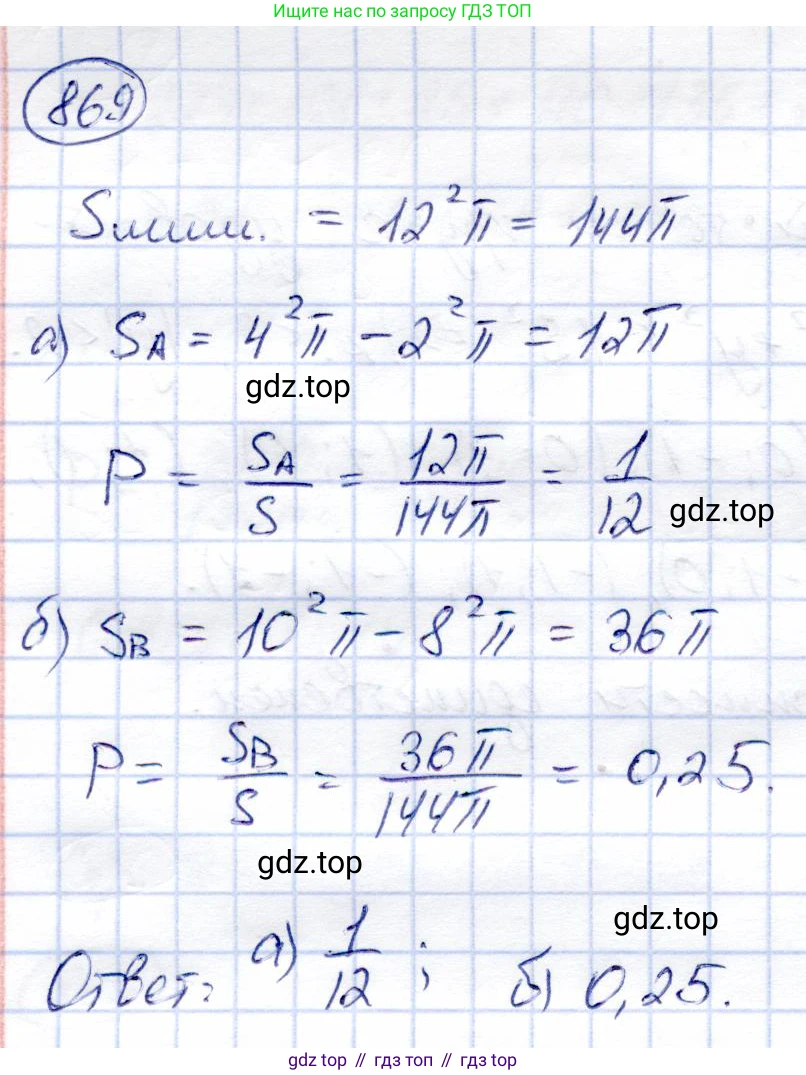 Ищите нас по запросу ГДЗ ТОП
869
Sмиш. = 12²π = 144π
а) SA = 4²π - 2²π = 12π
gdz.top
P = SA/S = 12π/144π = 1/12
gdz.top
б) SB = 10²π - 8²π = 36π
P = SB/S = 36π/144π = 0,25.
gdz.top
gdz.top
Ответ: а) 1/12 ; б) 0,25.
gdz top // гдз топ // gdz top